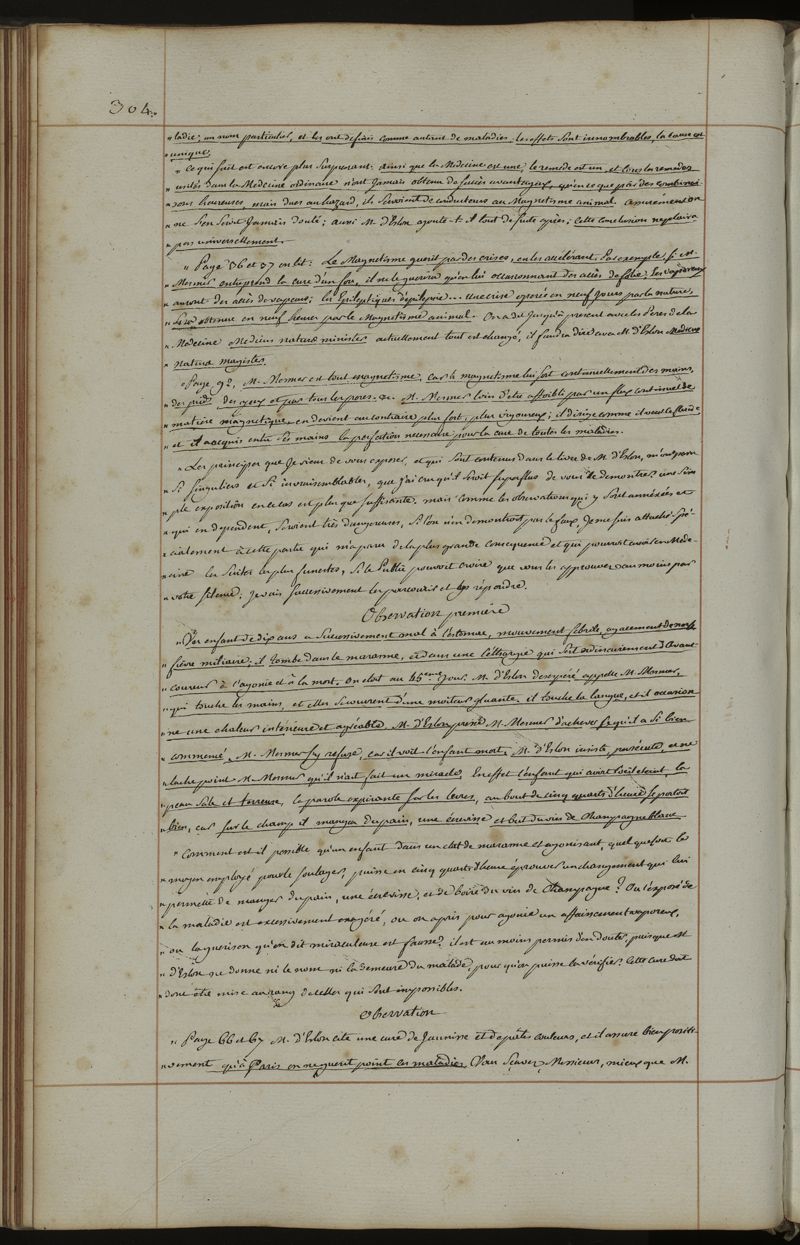 304.
"ladie; un nom particulier, et les ont definis comme autant de maladies. les effets sont innombrables, la cause est
"unique.
" Ce qui suit est encore plus surprenant: ainsi que la Medecine est une, le remede est un, et tous les remedes
" usités dans la Medecine ordinaire n'ont jamais obtenu de succès avantageux, qu'en ce que par des combinai-
" sons heureuses, mais dues au hazard, ils servoient de conducteurs au Magnetisme animal. assurement on
" ne s'en seroit jamais douté; aussi M. d'Eslon ajoute-t-il tout de suite après; Cette conclusion ne plaira
" pas universellement.
" Page 36 et 37 on lit: Le Magnetisme guerit par des crises, en les accélérant. Par exemple, si M.
" Mesmer entreprend la cure d'un fou, il ne le guerira qu'en lui occasionnant des accès de folie; les vaporeux
" auront des accès de vapeurs; les Epileptiques d'épilepsie... une crise operée en neuf jours par la nature,
" sera obtenue en neuf heures par le Magnetisme animal. On a dit jusqu'à present avec les Peres de la
" Medecine Medicus naturæ minister actuellement tout est changé, il faudra dire avec M. d'Eslon Medicus
" naturæ magister.
" Page 92, M. Mesmer est tout magnetisme, car le magnetisme lui sort continuellement des mains,
" des pieds des yeux et par tous les pores. M. Mesmer loin d'etre affoibli par un flux continuel de
" matiere magnetique, en devient au contraire plus fort, plus vigoureux; il dirige comme il veut le fluide
" et il acquis entre ses mains la perfection necessaire pour la cure de toutes les maladies.
" Les principes que je viens de vous exposer, et qui sont contenus dans le livre de M. d'Eslon, m'ont paru
" si singuliers et si invraisemblables, que j'ai cru qu'il seroit superflus de vous le demontrer; une sim
" ple exposition en ce cas est plus que suffisante. mais comme les observations qui y sont annexées et
" qui en dependent, seroient très dangereuses, si l'on n'en demontroit pas le faux, je me suis attaché spé-
" cialement à cette partie qui m'a paru de la plus grande consequence et qui pourroit avoir en Mede-
" cine les suites les plus funestes, si le Public pouvoit croire que vous les approuvez au moins par
" votre silence; je vais successivement les parcourir et les y répondre.
Observation premiere
" Un enfant de dix ans a successivement mal à l'estomac, mouvement febrile, agacement de nerfs
" fièvre miliaire; il tombe dans le marasme, et dans une léthargie qui sont ordinairement l'avant-
" coureur de l'agonie et à la mort. On etoit au 46eme jour. M. d'Eslon desesperé appelle M. Mesmer,
" qui touche les mains, et elles se couvrent d'une moiteur gluante. il touche la langue, et il occasion
" ne une chaleur intérieure et agréable. M. d'Eslon presse M. Mesmer d'achever ce qu'il a si bien
" commencé. M. Mesmer s'y refuse, car il voit l'enfant mort. M. d'Eslon insiste, persécute, et ne
" lache point M. Mesmer qu'il n'ait fait un miracle. En effet l'enfant qui avoit l'œil eteint, la
" peau sale et terreuse, la parole expirante sur les levres, au bout de cinq quarts d'heure se portoit
" bien, car sur le champ il mangea du pain, une écrevisse et but du vin de Champagne blanc.
" Comment est il possible qu'un enfant dans un etat de marasme et agonisant, quelque soit le
" moyen employé pour le soulager, puisse en cinq quarts d'heure éprouver un changement qui lui
" permette de manger du pain, une écrevisse, et de boire du vin de Champagne? Ou l'exposé de
" la maladie est excessivement exagéré, ou on a pris pour agonie un affaissement vaporeux,
" ou la guerison qu'on dit miraculeuse est fausse; il est au moins permis d'en douter, puisque M.
" d'Eslon ne donne ni le nom ni la demeure du malade, pour qu'on puisse la vérifier. Cette cure doit
" donc être mise au rang de celles qui sont impossibles.
Observation 2e
" Page 66 et 67 M. d'Eslon cite une cure de Jaunisse et de pâles couleurs, et il assure bien positi
" vement qu'à Paris on ne guerit point ces maladies. Vous sçavez, Messieurs, mieux que M.